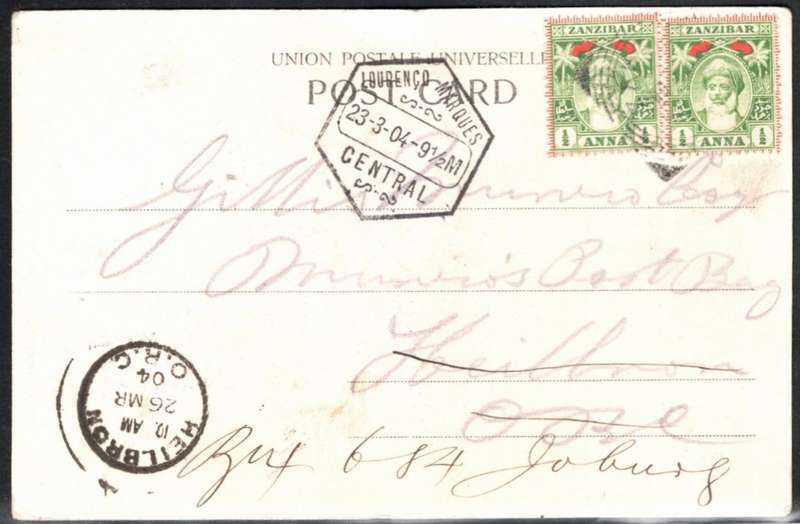 UNION POSTALE UNIVERSELLE
POST CARD
ZANZIBAR
½ ½
ANNA
ZANZIBAR
½ ½
ANNA
LOURENÇO MARQUES
23-3-04-9½M
CENTRAL
Munro Esq
Munro's Post Bag
Heilbron
HEILBRON
10 AM
26 MR
04
O.R.C
Box 684 Joburg